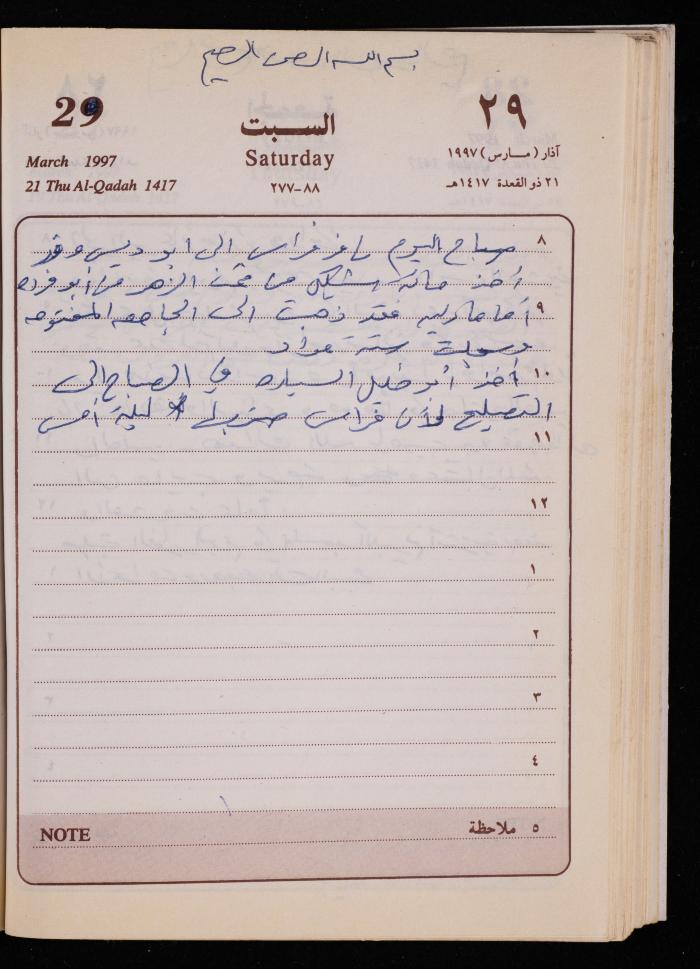 بسم الله الرحمن الرحيم
29 ٢٩
السبت
March 1997 Saturday آذار (مارس) ١٩٩٧
21 Thu Al-Qadah 1417 ٢٧٧-٨٨ ٢١ ذو القعدة ١٤١٧هـ
٨ صباح اليوم سافر فراس الى ابو ديس وقد
أخذ مائة شيكل من ثمن الزهر من أبو فرده
٩ أما ماريه فقد ذهبت الى الجامعه المفتوحه
وسجلت ستة مواد
١٠ أخذ أبو خليل السياره في الصباح الى
التصليح لأن فراس ضربها ليلة أمس
١١
١٢
١
٢
٣
٤
NOTE ٥ ملاحظة